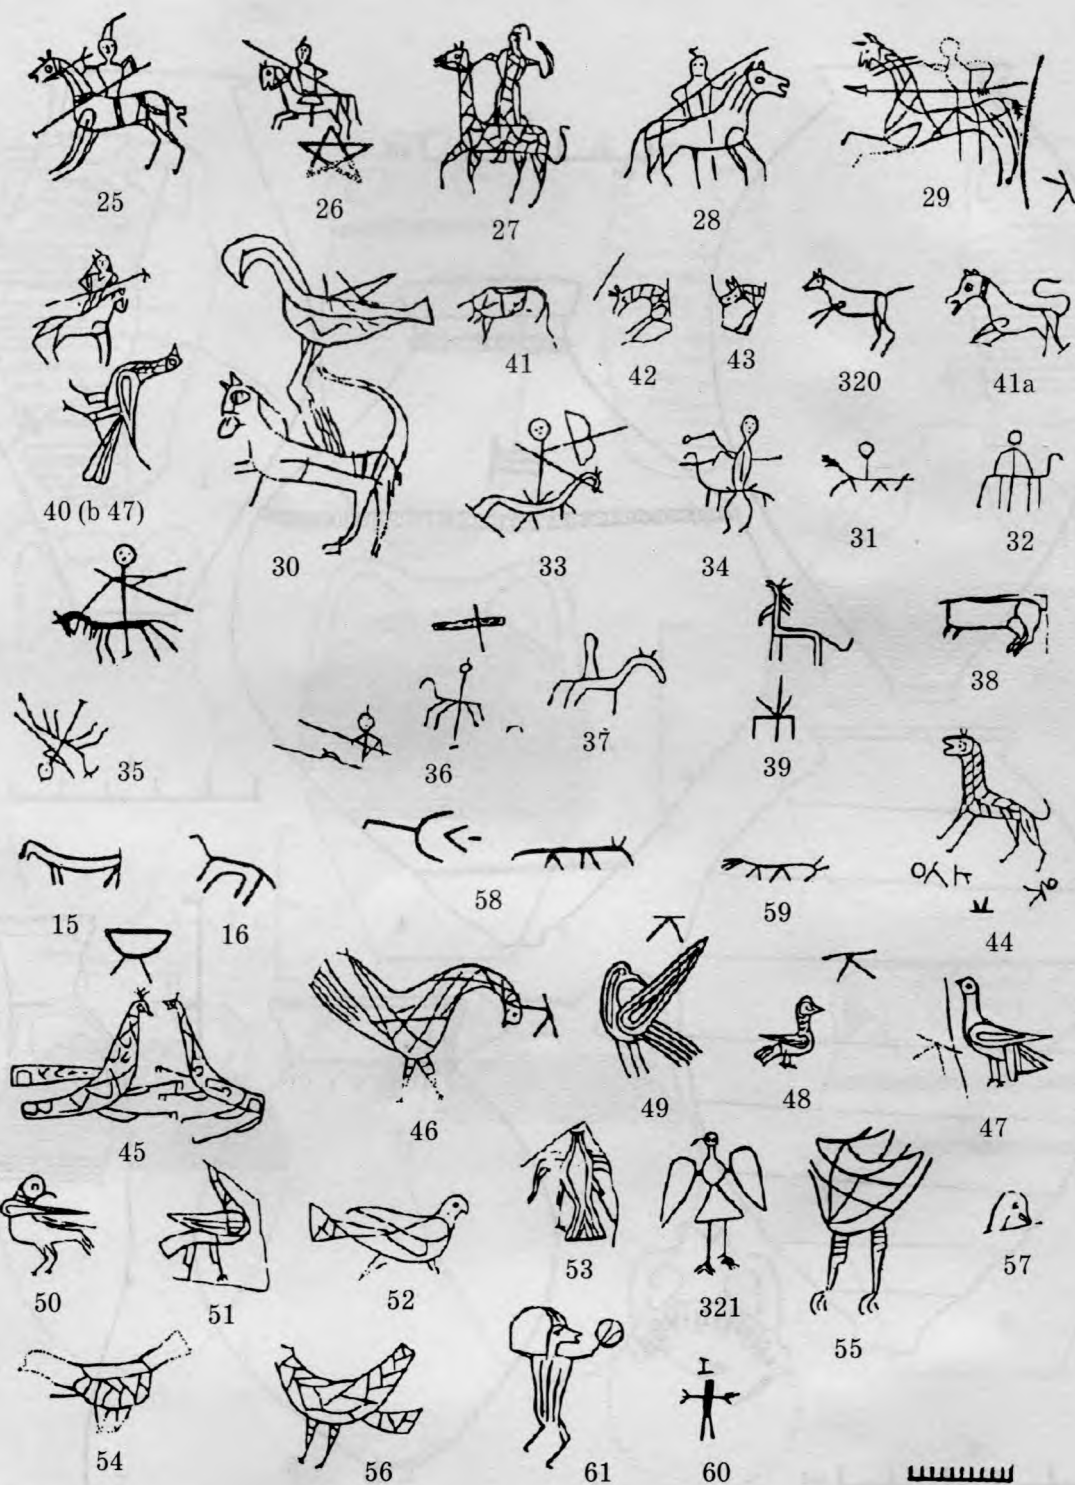 25 26 27 28 29
41 42 43 320 41a
40 (b 47) 30 33 34 31 32
35 36 37 39 38
15 16 58 59 44
45 46 49 48 47
50 51 52 53 321 55 57
54 56 61 60